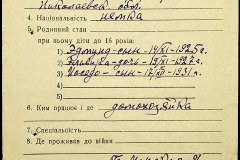 Николаевск обл.
4. Національність немка
5. Родинний стан
при ньому діти до 16 років:
1) Эдмунд - сын - 14/XI - 1925 г.
2) - дочь - 19/XI - 1927 г.
3) - сын - 17/XII - 1931 г.
4)
6. Ким працює і де домохозяйка
7. Спеціальність
8. Де проживав до війни